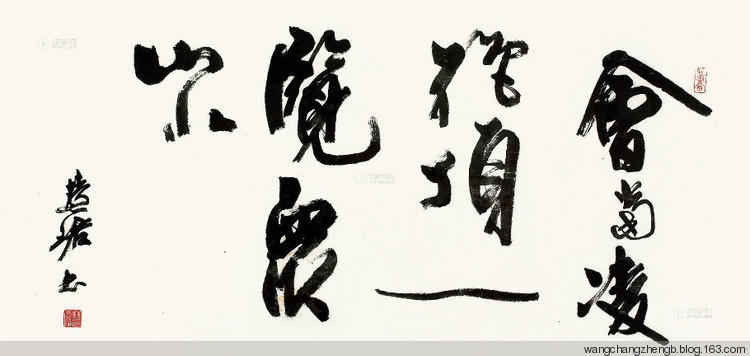 會當凌
絕頂一
覽眾
山小
wangchangzhengb.blog.163.com